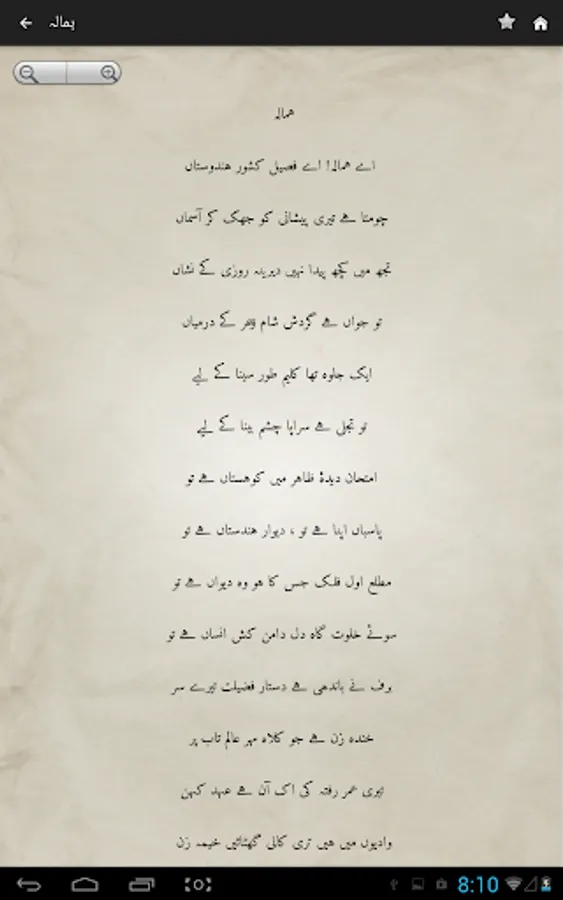 ہمالہ
ہمالہ
اے ہمالہ! اے فصیل کشور ہندوستاں
چومتا ہے تیری پیشانی کو جھک کر آسماں
تجھ میں کچھ پیدا نہیں دیرینہ روزی کے نشاں
تو جواں ہے گردش شام و سحر کے درمیاں
ایک جلوہ تھا کلیم طور سینا کے لیے
تو تجلی ہے سراپا چشم بینا کے لیے
امتحان دیدۂ ظاہر میں کوہستاں ہے تو
پاسباں اپنا ہے تو ، دیوار ہندستاں ہے تو
مطلع اول فلک جس کا ہو وہ دیواں ہے تو
سوئے خلوت گاہ دل دامن کش انساں ہے تو
برف نے باندھی ہے دستار فضیلت تیرے سر
خندہ زن ہے جو کلاہ مہر عالم تاب پر
تیری عمر رفتہ کی اک آن ہے عہد کہن
وادیوں میں ہیں تری کالی گھٹائیں خیمہ زن
8:10